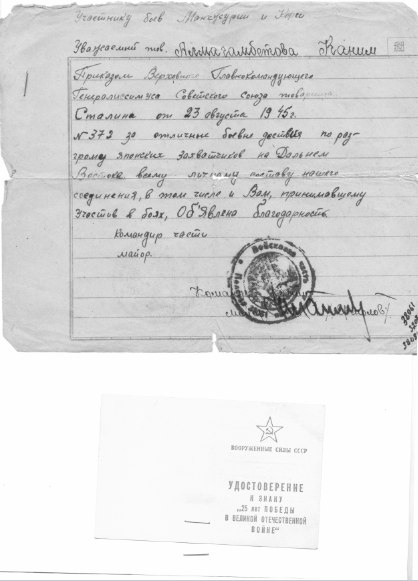 Участнику боев Манчжурии и Кореи
Уважаемый тов. Алмагамбетова Каким
Приказом Верховного Главнокомандующего
Генералиссимуса Советского Союза товарища
Сталина от 23 августа 1945г.
№ 372 за отличные боевые действия по раз-
грому японских захватчиков на Дальнем
Востоке всему личному составу нашего
соединения, в том числе и Вам, принимавшему
участие в боях, Об'явлена благодарность.
Командир части
майор.
ВООРУЖЕННЫЕ СИЛЫ СССР
УДОСТОВЕРЕНИЕ
К ЗНАКУ
„25 лет ПОБЕДЫ
В ВЕЛИКОЙ ОТЕЧЕСТВЕННОЙ
ВОЙНЕ"